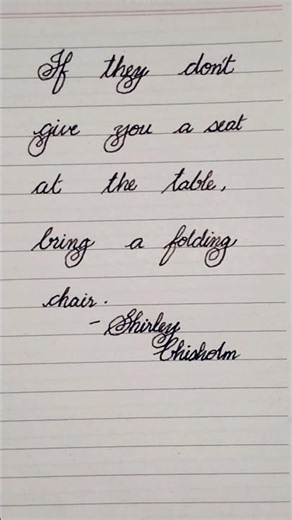 If they don't
give you a seat
at the table,
bring a folding
chair.
- Shirley
Chisholm